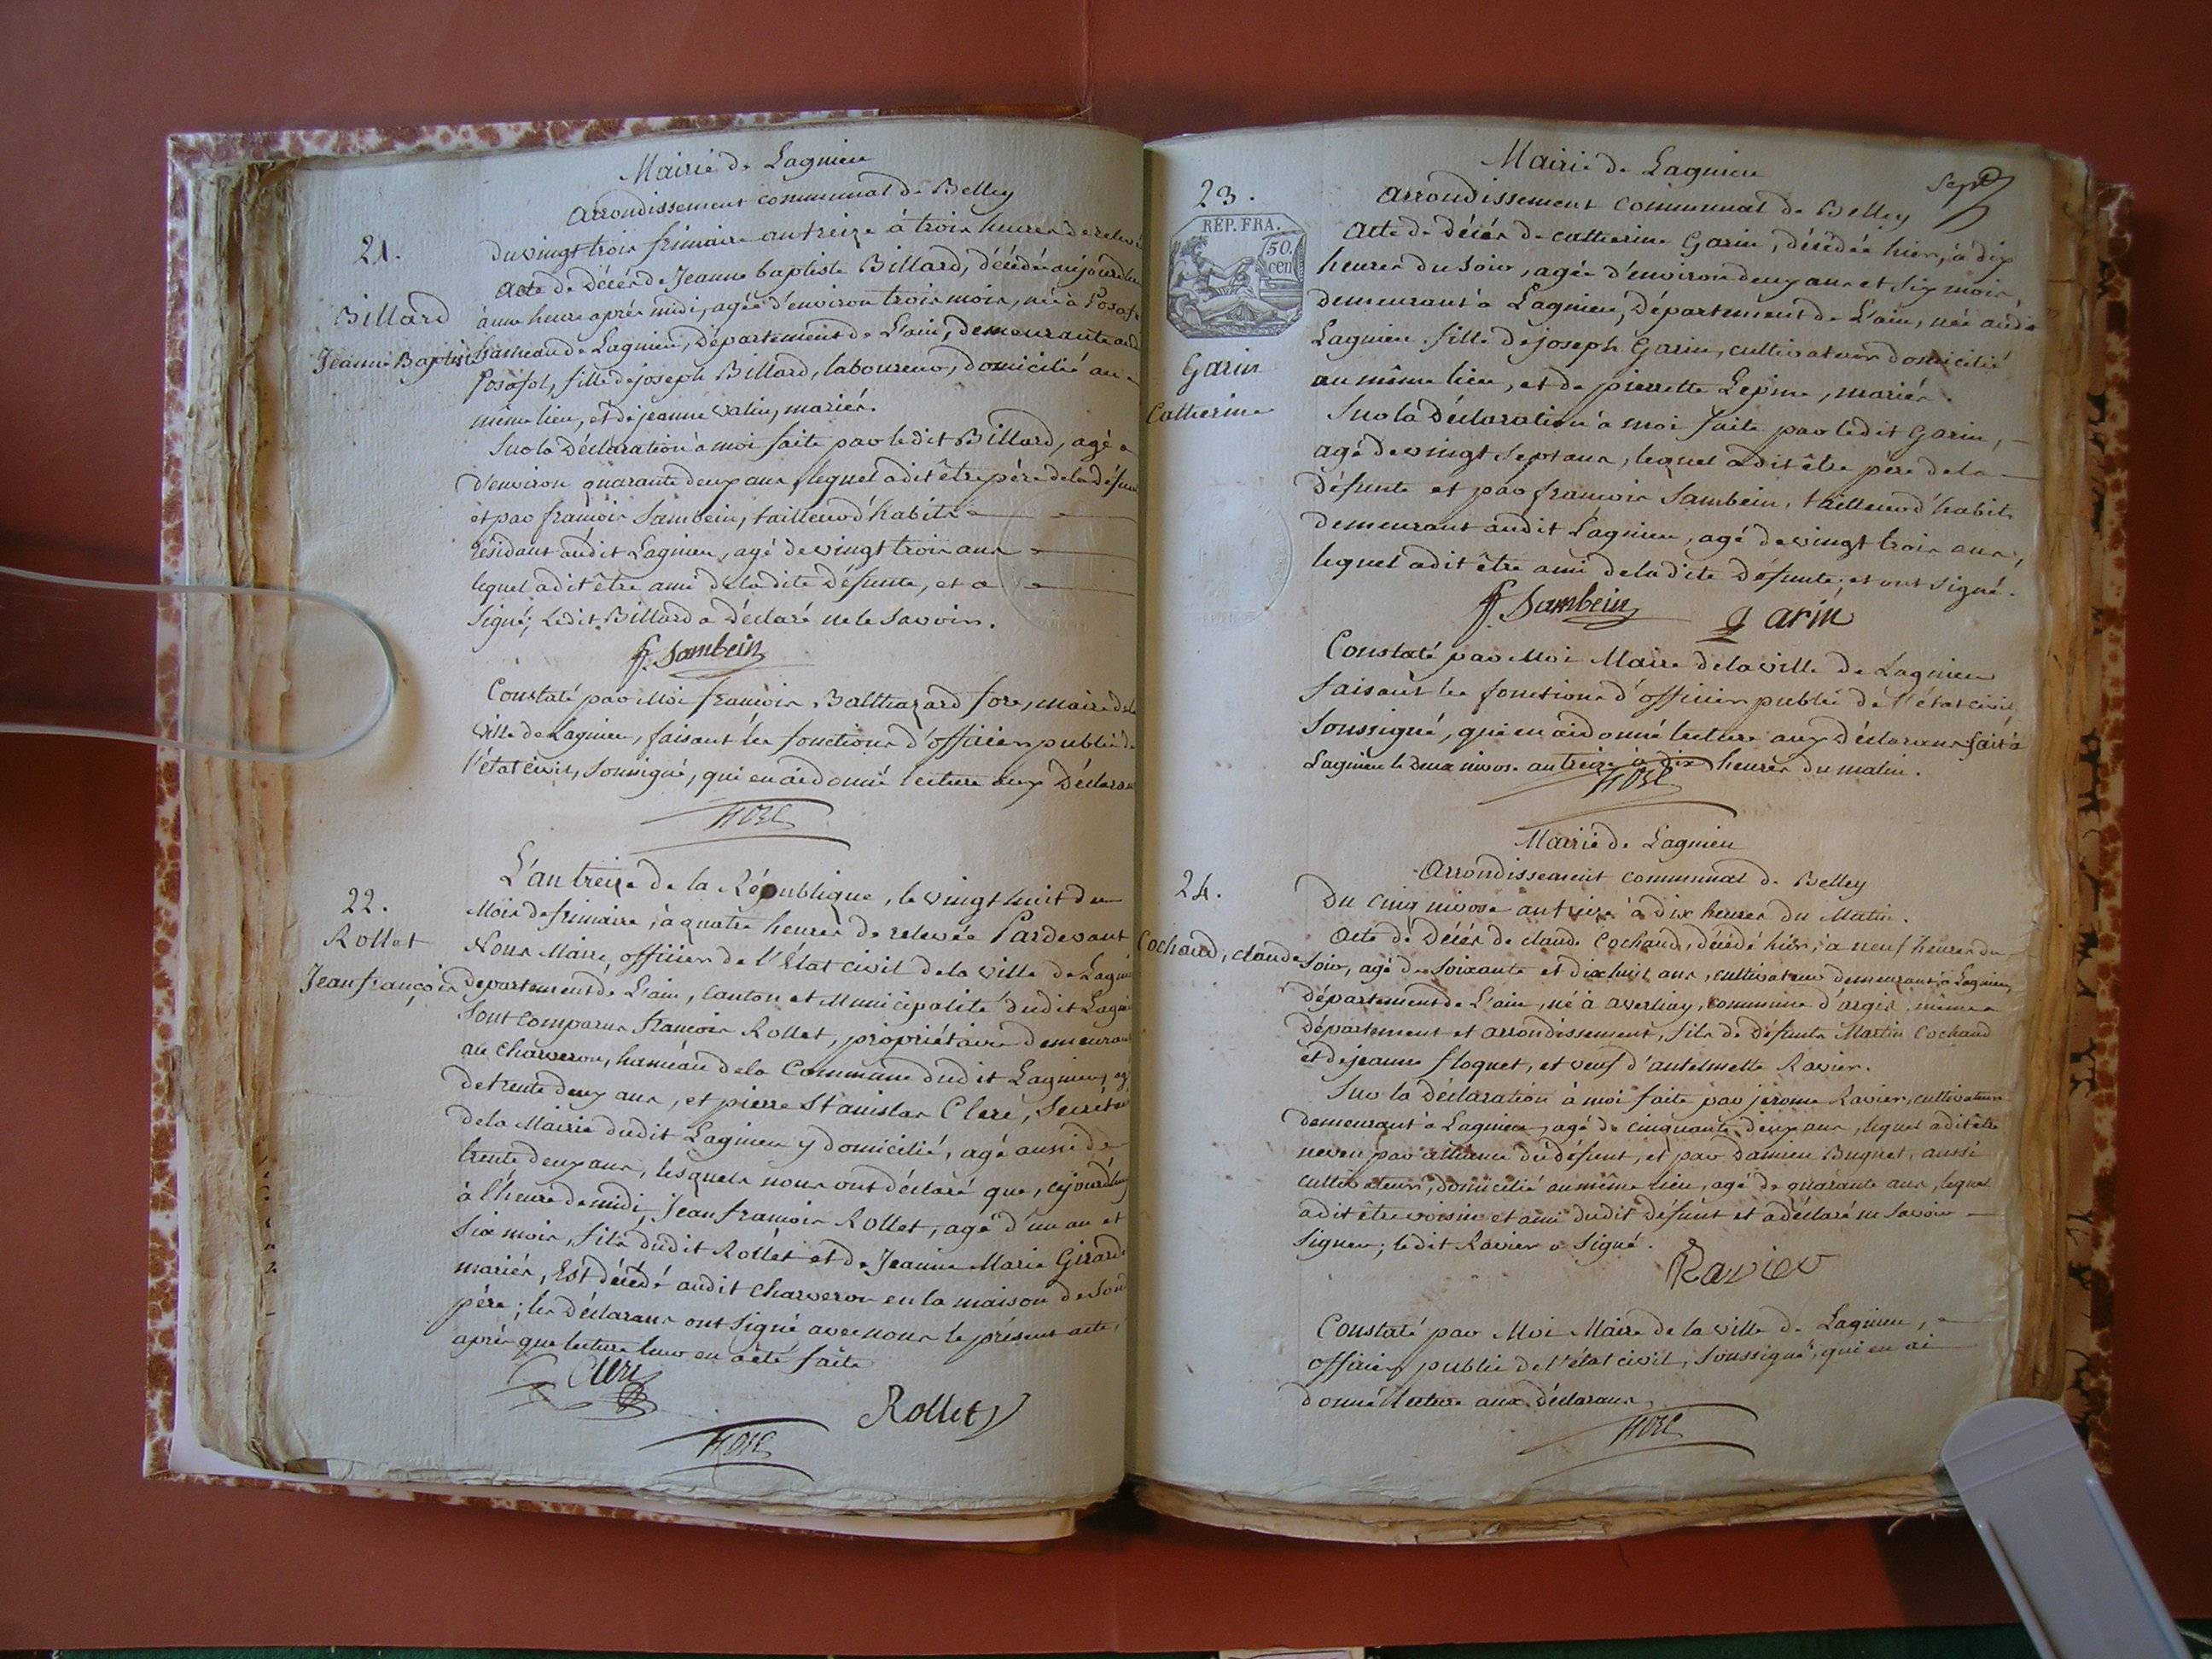 Mairie de Lagnieu
Arrondissement communal de Belley
21.
Du vingt trois frimaire an treize à trois heures de relevée
Acte de Décés de Jeanne baptiste Billard, décédée aujourdhui
Billard
à une heure aprés midi, agée d'environ trois mois, née à Posafol
Jeanne Baptiste
hameau de Lagnieu, Département de L'ain, demeurante audit
Posofol, fille de joseph Billard, laboureur, domicilié au
même lieu, et de jeanne Valin, mariés.
Sur la Déclaration à moi faite par ledit Billard, agé
d'environ quarante deux ans, lequel a dit être pére de la défunte
et par françois Sambein, tailleur d'habits
résidant audit Lagnieu, agé de vingt trois ans
lequel a dit être ami de la dite Défunte, et a
signé; ledit Billard a déclaré ne le savoir.
f. Sambein
Constaté par Moi françois Balthazard fore, maire de la
ville de Lagnieu, faisant les fonctions d'officier public de
l'état civil, soussigné, qui en ai donné lecture aux Déclarans
fore
22.
L'an treize de la République, le vingt huit du
Rollet
Mois de frimaire, à quatre heures de relevée Pardevant
Jean françois
Nous Maire, officier de l'État civil de la ville de Lagnieu
departement de L'ain, canton et Municipalité dudit Lagnieu
Sont comparus françois Rollet, propriétaire demeurant
au Charveron, hameau de la Commune dudit Lagnieu, agé
de trente deux ans, et pierre Stanislas Cleré, Secrétaire
de la Mairie dudit Lagnieu y domicilié, agé aussi de
trente deux ans, lesquels nous ont déclaré que, cejourdhui
à l'heure de midi, Jean françois Rollet, agé d'un an et
six mois, fils dudit Rollet et de Jeanne Marie Girard
mariés, Est décédé audit Charveron en la maison de son
pére; les Déclarans ont signé avec nous le présent acte,
aprés que lecture leur en a été faite
Cleré
Rollet
fore
Mairie de Lagnieu
Sept
23.
Arrondissement communal de Belley
RÉP. FRA.
50.
cen
Acte de décés de catherine Garin, décédée hier, à dix
heures du soir, agée d'environ deux ans et six mois,
demeurant à Lagnieu, Département de L'ain, née audit
Lagnieu, fille de joseph Garin, cultivateur domicilié
Garin
au même lieu, et de pierrette Lepine, mariés.
Catherine
Sur la Déclaration à moi faite par ledit Garin,
agé de vingt sept ans, lequel a dit être pére de la
Défunte et par françois Sambein, tailleur d'habits
demeurant audit Lagnieu, agé de vingt trois ans,
lequel a dit être ami de la dite Défunte; et ont signé.
f. Sambein
garin
Constaté par Moi Maire de la ville de Lagnieu
faisant les fonctions d'officier public de l'état civil,
soussigné, qui en ai donné lecture aux Déclarans fait à
Lagnieu le deux nivose an treize à dix heures du matin.
fore
Mairie de Lagnieu
Arrondissement communal de Belley
24.
Du cinq nivose an treize à dix heures du Matin.
Cochaud, claude
Acte de Décés de claude Cochaud, décédé hier, à neuf heures du
soir, agé de soixante et dix huit ans, cultivateur demeurant à Lagnieu,
Département de L'ain, né à averliay, commune d'argis, même
Département et arrondissement, fils de défunts Martin Cochaud
et de jeanne floquet, et veuf d'antelmette Ravier.
Sur la déclaration à moi faite par jerome Ravier, cultivateur
demeurant à Lagnieu, agé de cinquante deux ans, lequel a dit être
neveu par alliance du défunt, et par Damien Bugnet, aussi
cultivateur, domicilié au même lieu, agé de quarante ans, lequel
a dit être voisin et ami dudit défunt et a déclaré ne savoir
signer; ledit Ravier a signé.
Ravier
Constaté par Moi Maire de la ville de Lagnieu,
officier public de l'état civil, soussigné, qui en ai
donné lecture aux déclarans
fore